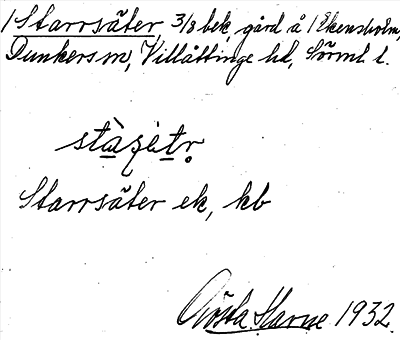 /Starrsäter, 3/8 bek, gård å /Ekensholm,
Dunkers sn, Villåttinge hd, Sörml. l.
stàṣètr̥
Starrsäter ek, kb
Gösta Harne 1932.